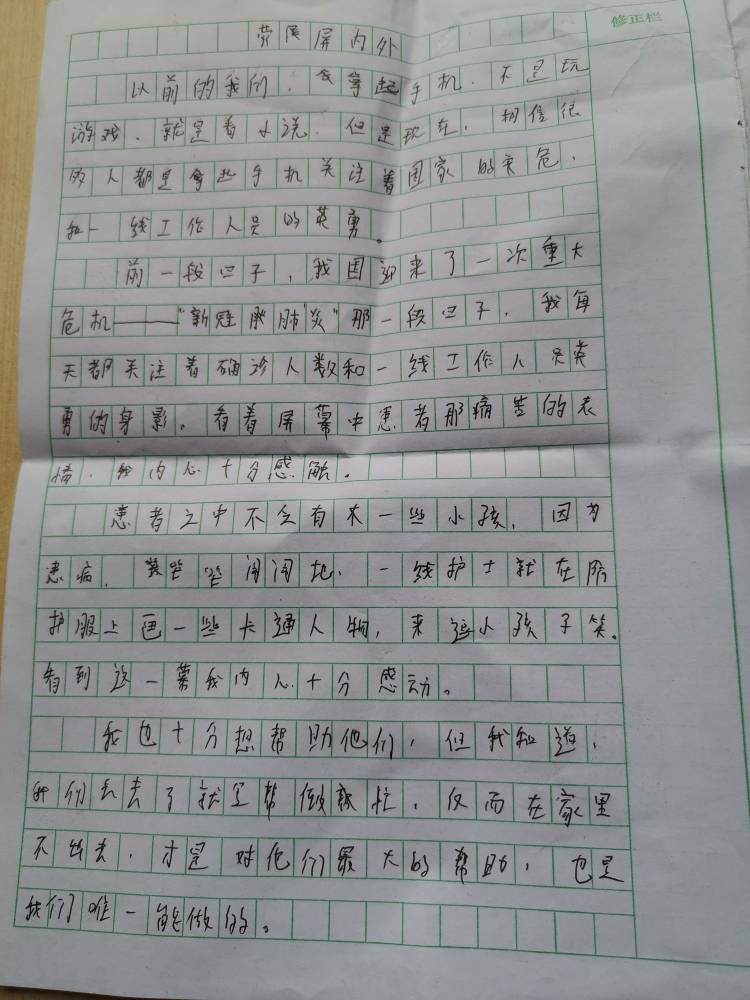 修正栏
荧屏屏内外
以前的我们，会拿起手机，不是玩
游戏、就是看小说，但是现在，相信很
多人都是拿起手机关注着国家的安危，
和一线工作人员的英勇。
前一段日子，我国迎来了一次重大
危机——"新冠肺炎"那一段日子，我每
天都关注着确诊人数和一线工作人员英
勇的身影。看着屏幕中患者那痛苦的表
情，我内心十分感触。
患者之中不乏有一些小孩，因为
患病，哭哭闹闹地，一线护士就在防
护服上画一些卡通人物，来逗小孩子笑。
看到这一幕我内心十分感动。
我也十分想帮助他们，但我知道，
我们去了就是帮倒忙，反而在家里
不出去，才是对他们最大的帮助，也是
我们唯一能做的。